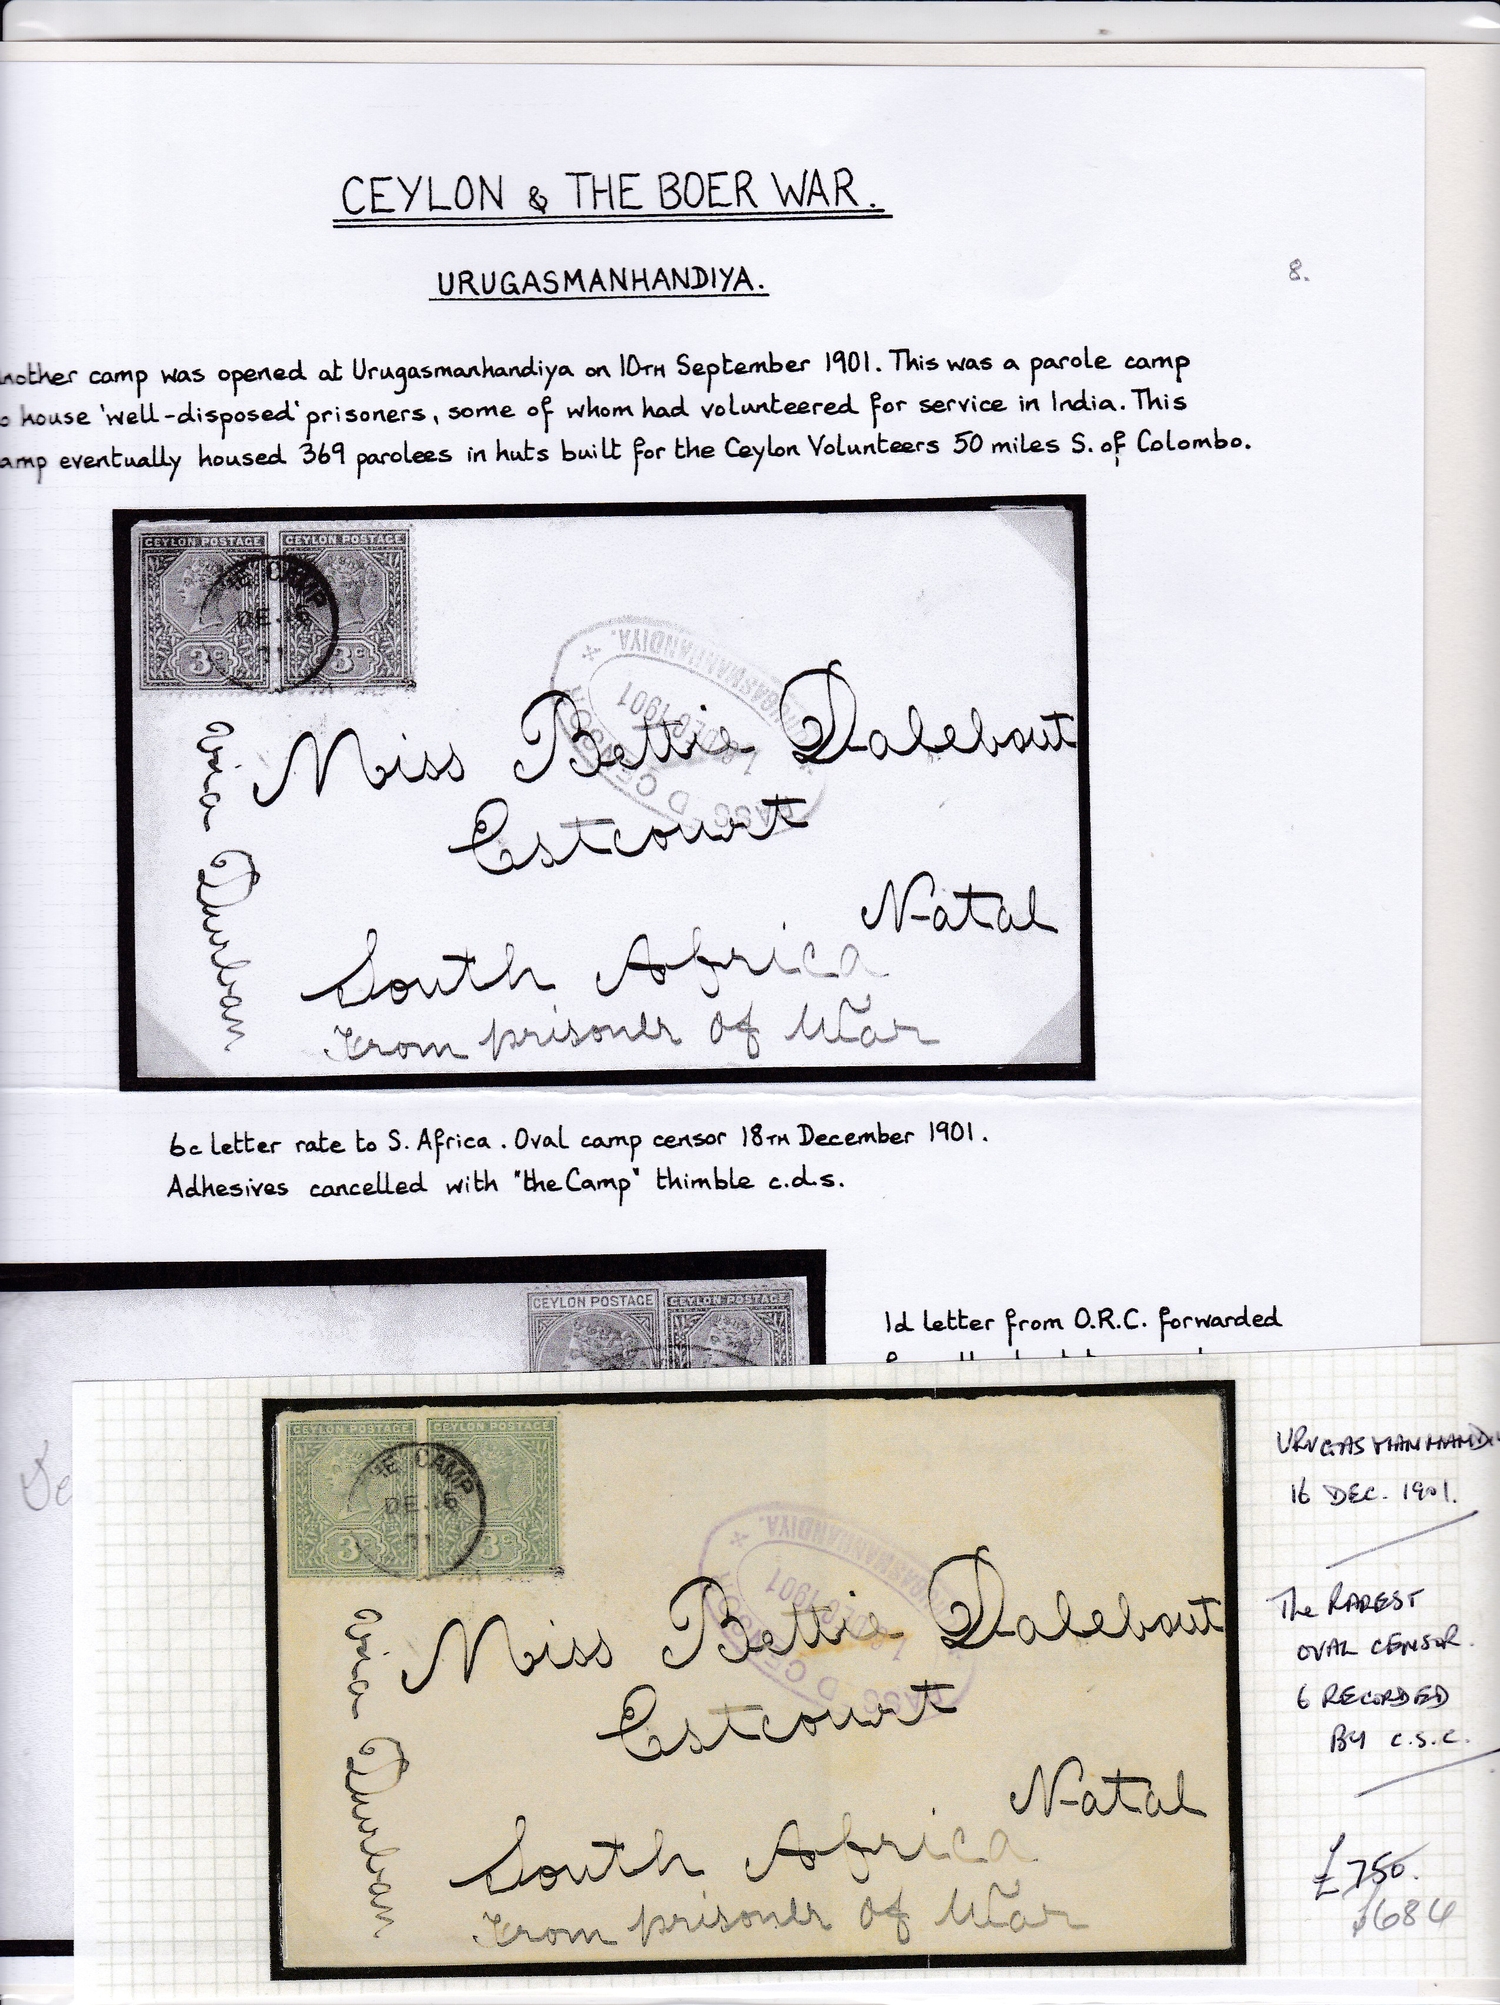 CEYLON & THE BOER WAR.
URUGASMANHANDIYA.
8.
nother camp was opened at Urugasmanhandiya on 10TH September 1901. This was a parole camp
o house 'well-disposed' prisoners, some of whom had volunteered for service in India. This
amp eventually housed 369 parolees in huts built for the Ceylon Volunteers 50 miles S. of Colombo.
CEYLON POSTAGE CEYLON POSTAGE
HE CAMP
DE 16
3c 3c
URUGASMANHANDIYA.
18 DEC 1901
PASS D CENSOR
Miss Bettie Dalebout
Estcourt
Natal
South Africa
From prisoner of War
via Durban
6c letter rate to S. Africa. Oval camp censor 18TH December 1901.
Adhesives cancelled with "the Camp" thimble c.d.s.
CEYLON POSTAGE CEYLON POSTAGE
1d letter from O.R.C. forwarded
CEYLON POSTAGE CEYLON POSTAGE
HE CAMP
DE 16
3c 3c
URUGASMANHANDIYA.
18 DEC 1901
PASS D CENSOR
Miss Bettie Dalebout
Estcourt
Natal
South Africa
From prisoner of War
via Durban
URUGASMANHANDI
16 DEC. 1901.
The RAREST
OVAL CENSOR.
6 RECORDED
BY C.S.C.
£750.
$684